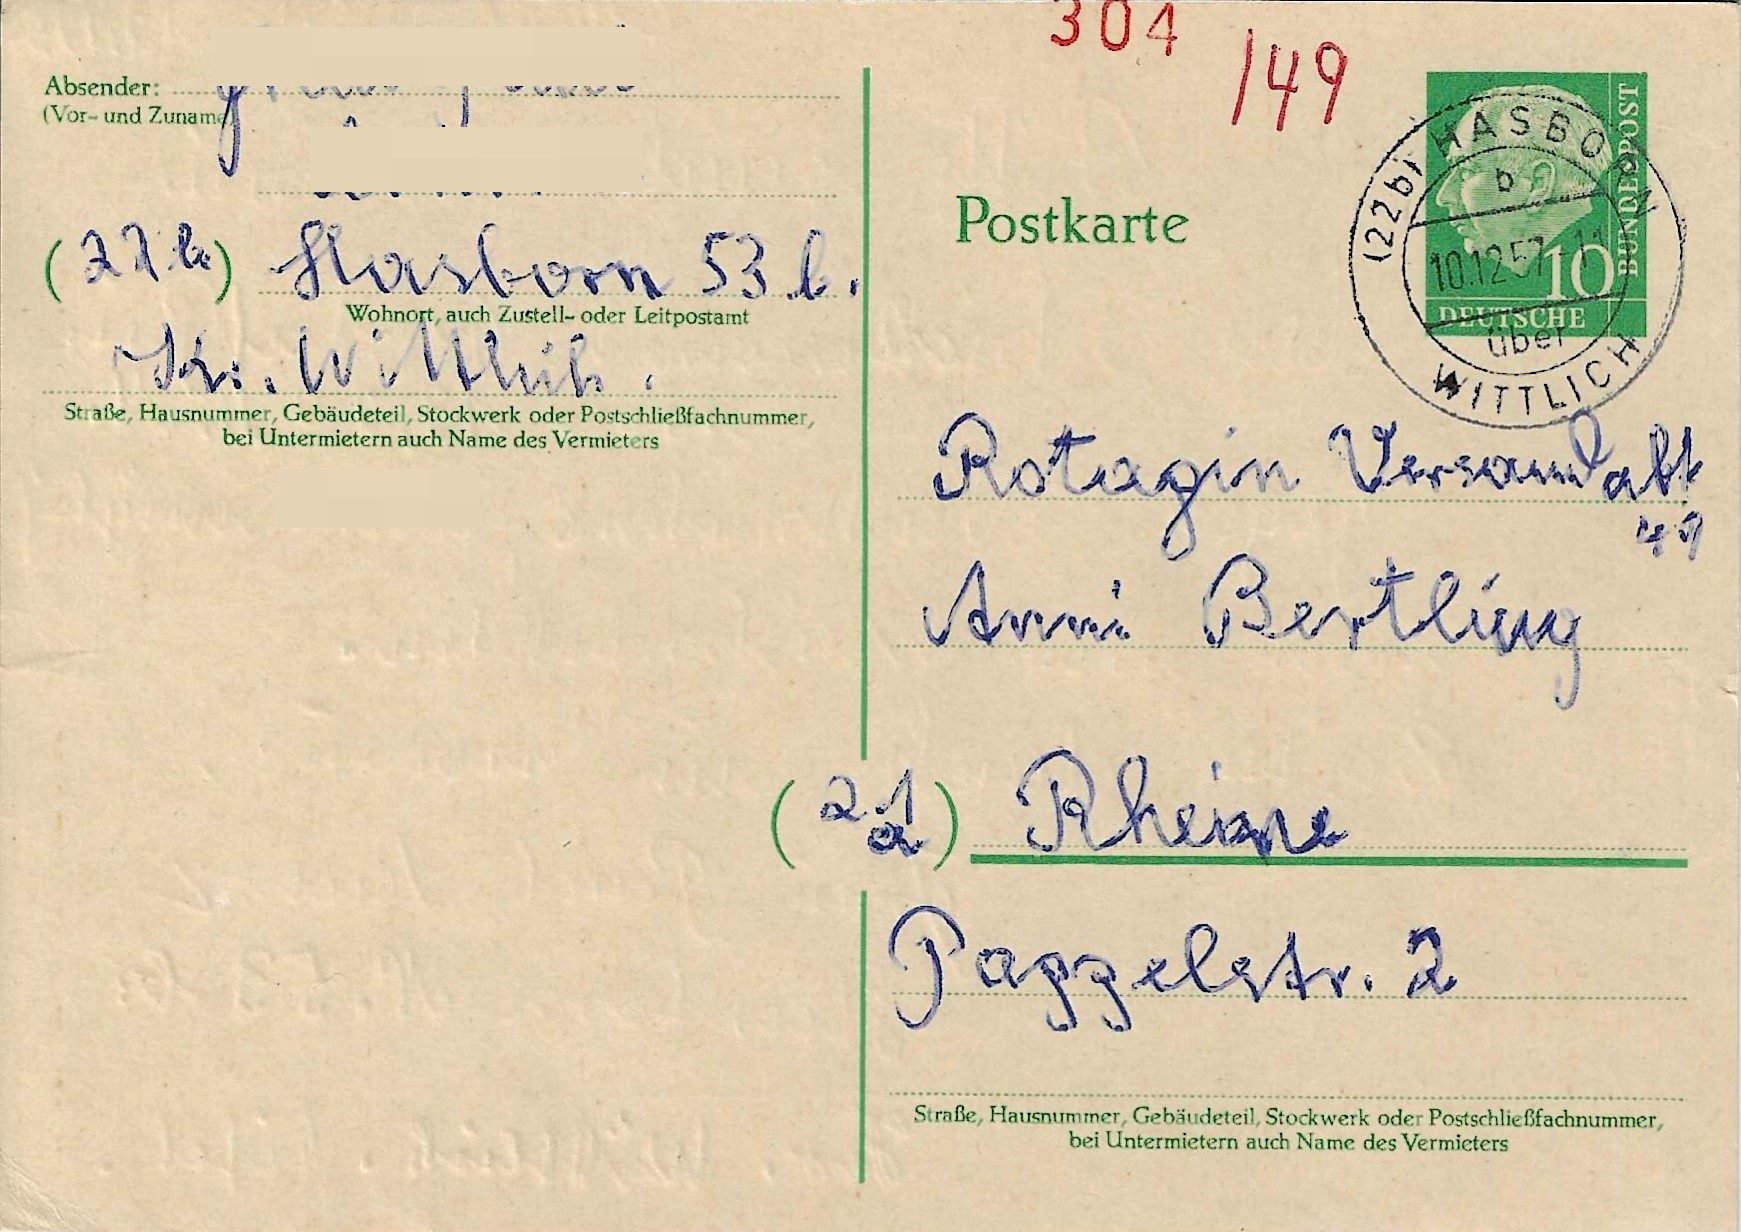 304
149
Absender:
(Vor- und Zuname)
(22b) Hasborn 53 b.
Wohnort, auch Zustell- oder Leitpostamt
Kr. Wittlich.
Straße, Hausnummer, Gebäudeteil, Stockwerk oder Postschließfachnummer,
bei Untermietern auch Name des Vermieters
Postkarte
DEUTSCHE
BUNDESPOST
10
(22b) HASBORN
b
10.12.57-11
über
WITTLICH
Rotagin Versandabt
49
Anni Bertling
(21a) Rheine
Pappelstr. 2
Straße, Hausnummer, Gebäudeteil, Stockwerk oder Postschließfachnummer,
bei Untermietern auch Name des Vermieters